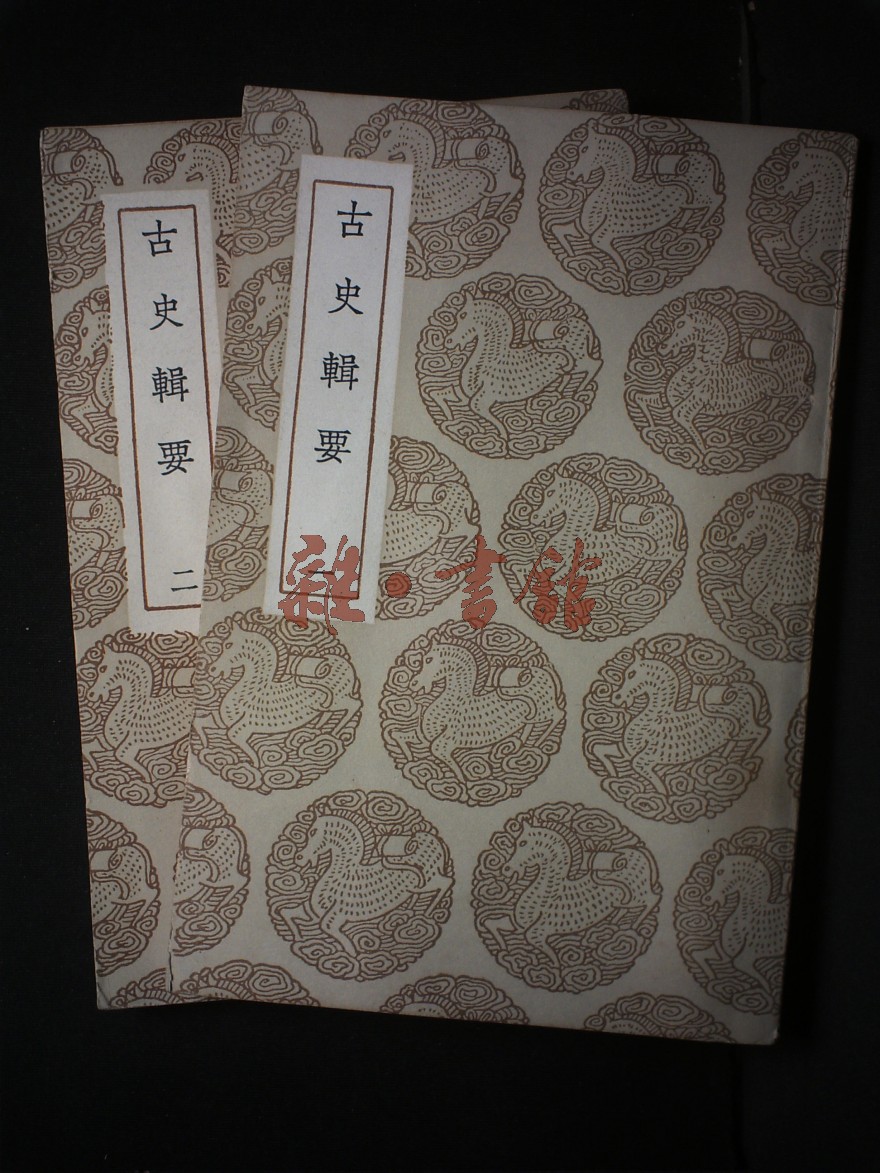 古史輯要
一
古史輯要
二
雜·書館